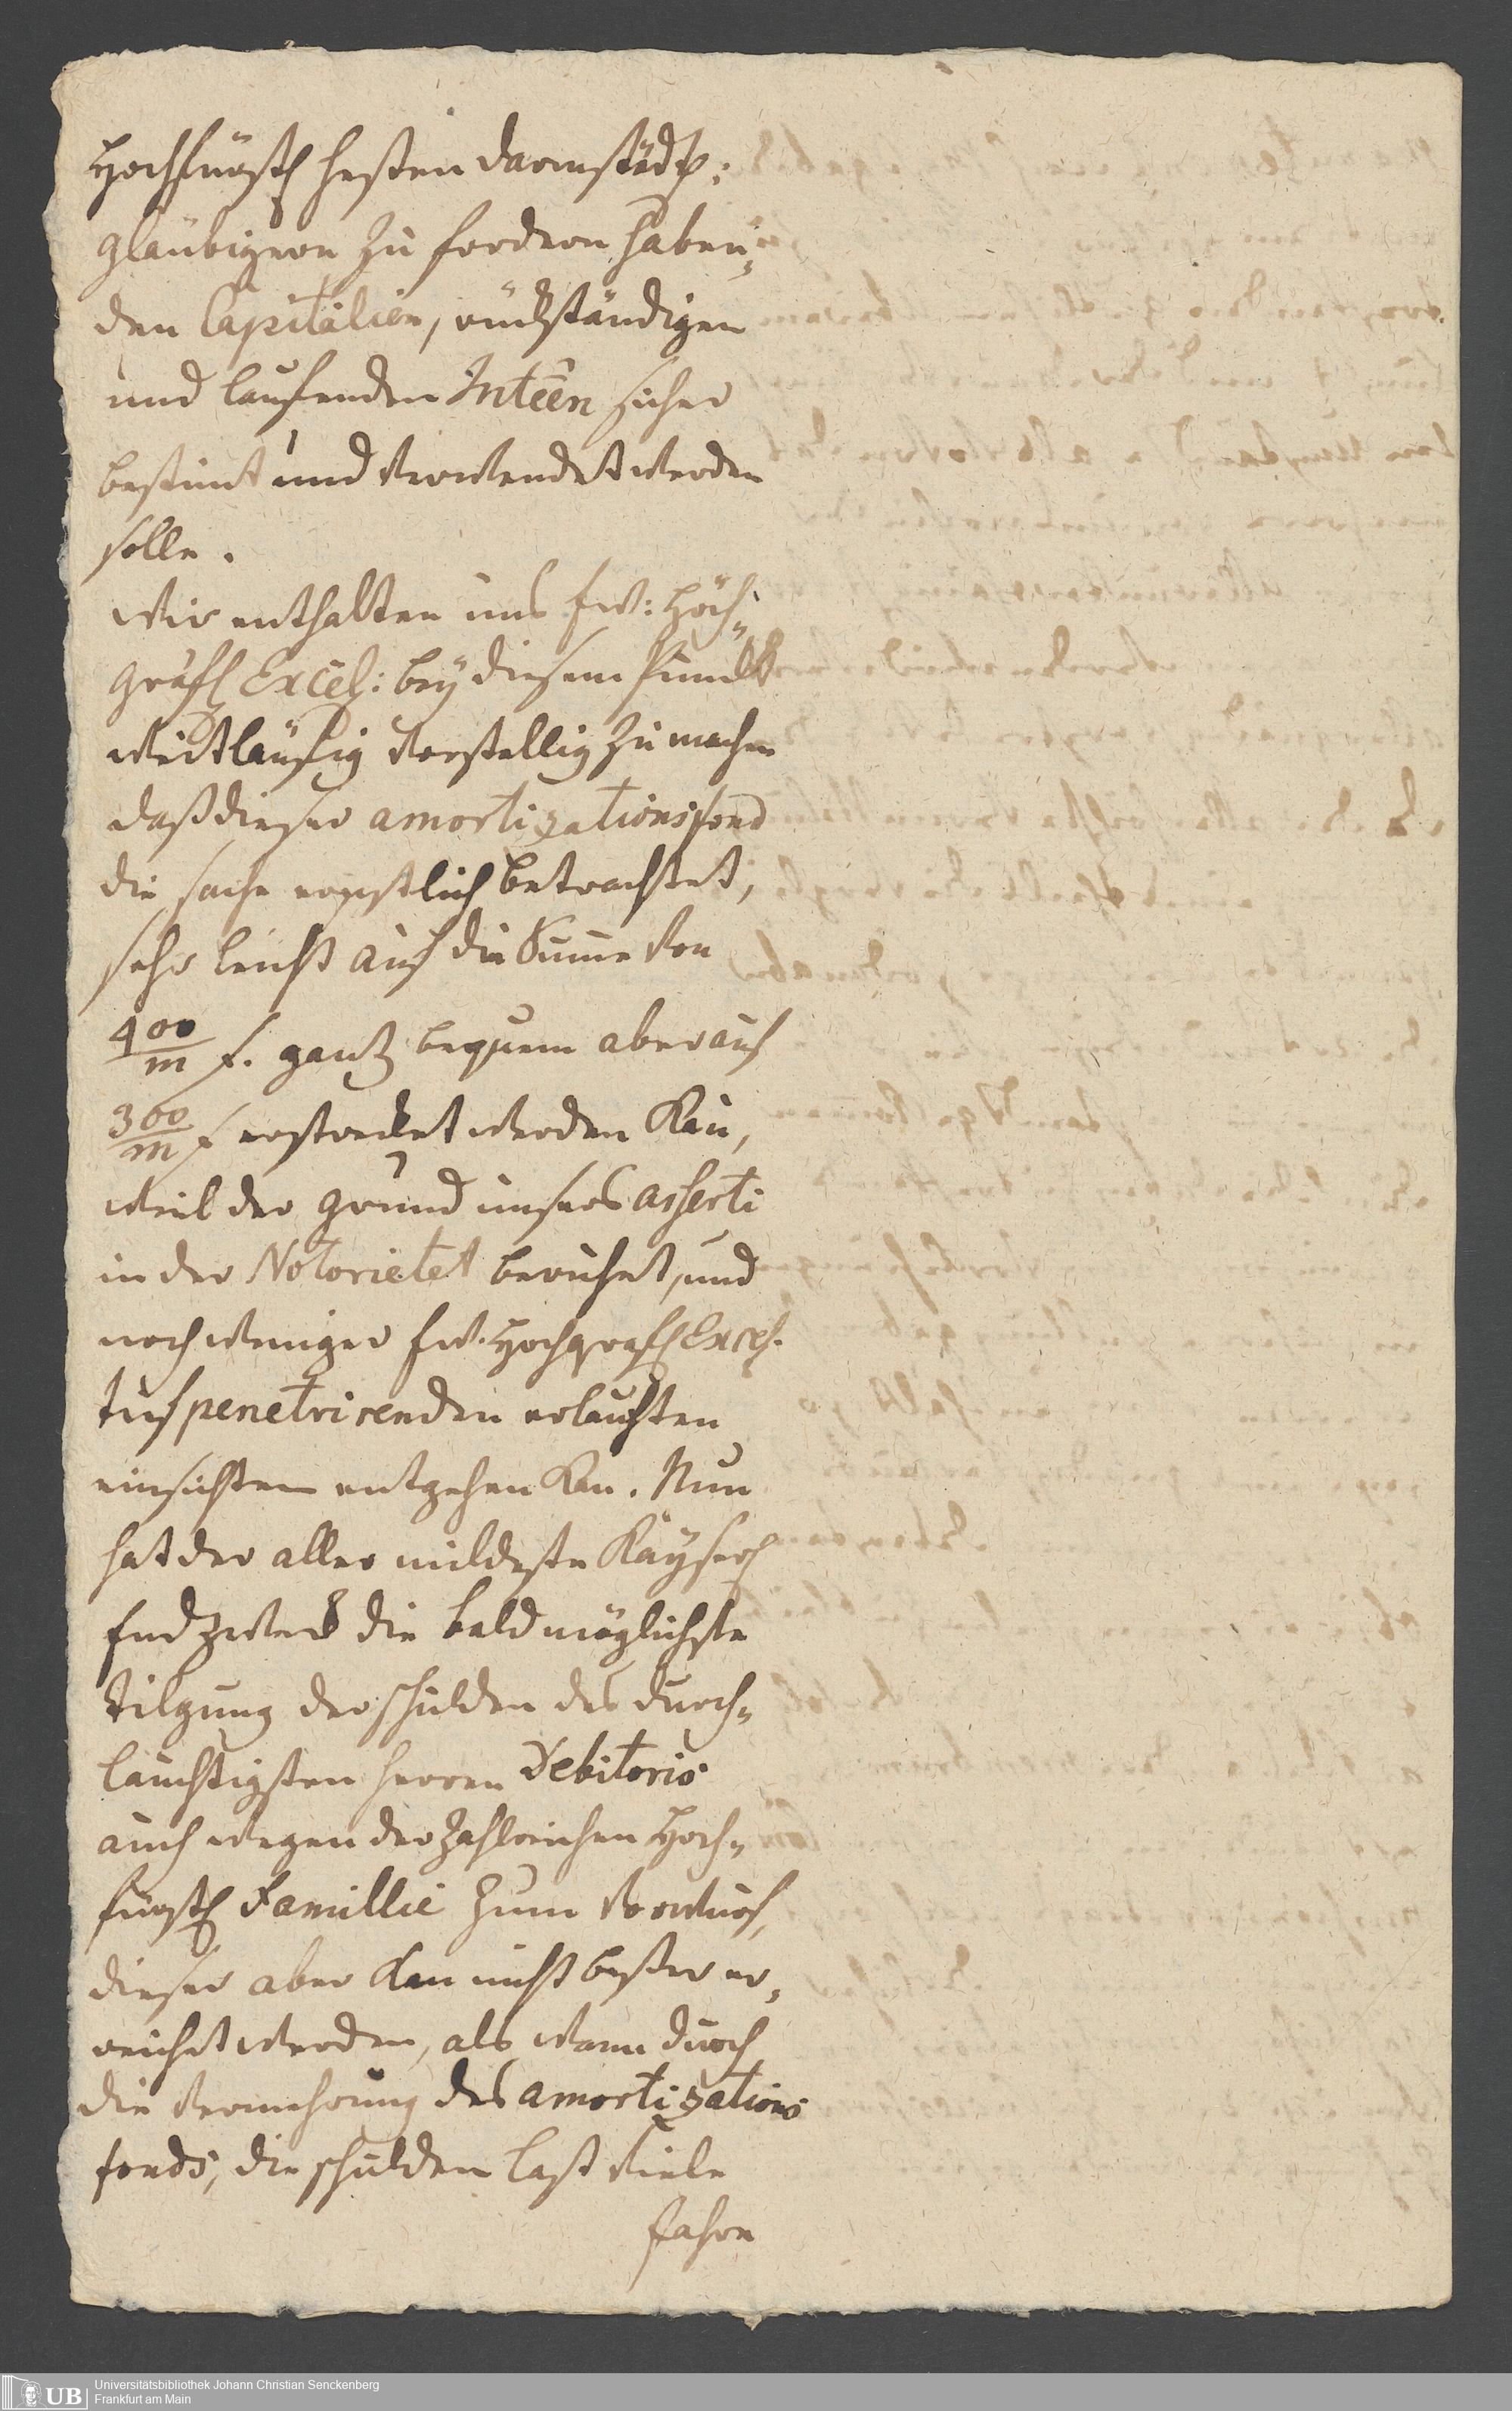 Hochfürstl Heßen Darmstädt:
Glaubigeren zu forderen haben¬
den Capitalien, rückständigen
und laufenden Inteen sicher
bestimt und verwendet werden
solle.
Wir enthalten uns Ew: Hoch¬
Gräfl Excel: bey diesem Punckt
weitläufig vorstellig zu machen
daß dieser amortizationsfond
die sache ernstlich betrachtet,
sehr leicht auf die Summe von
400/m f. gantz bequem aber auf
300/m f erstrecket werden kan,
weil der Grund unsers asserti
in der Notorietet beruhet, und
noch weniger Ew. Hochgrafl Excel.
tief penetrirenden erlauchten
einsichten entgehen kan. Nun
hat der aller mildeste Kayserl
Endzweck die bald möglichste
Tilgung der schulden des durch¬
lauchtigsten Herren Debitoris
auch wegen der zahlreichen Hoch¬
fürstl Famillie zum Vorwurf,
dieser aber kan nicht beßer er¬
reichet werden, als wann durch
die Vermehrung des amortizations
fonds, die schulden last viele
Jahre
UB
Universitätsbibliothek Johann Christian Senckenberg
Frankfurt am Main